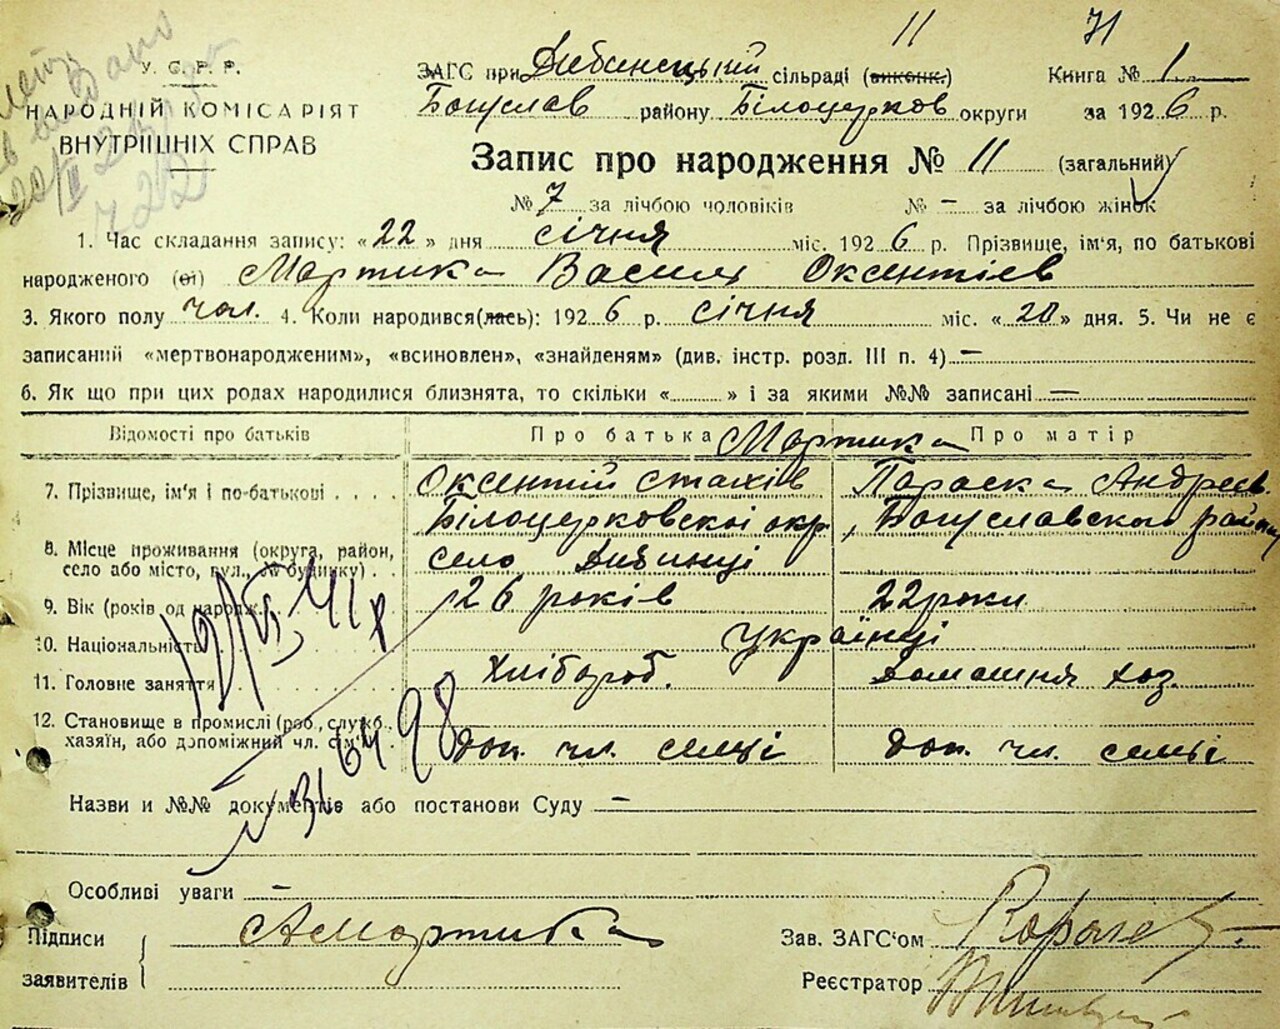 11 71
У. С. Р. Р.
НАРОДНІЙ КОМІСАРІЯТ
ВНУТРІШНІХ СПРАВ
ЗАГС при Дибинецький сільраді (виконк.) Книга № 1
Богуслав району Білоцерков округи за 1926 р.
Запис про народження № 11 (загальний)
№ 7 за лічбою чоловіків № — за лічбою жінок
1. Час складання запису: «22» дня січня міс. 1926 р. Прізвище, ім'я, по батькові
народженого (ої) Мартика Василь Оксентіев
3. Якого полу чол. 4. Коли народився(лась): 1926 р. січня міс. «20» дня. 5. Чи не є
записаний «мертвонародженим», «всиновлен», «знайденям» (див. інстр. розд. III п. 4) —
6. Як що при цих родах народилися близнята, то скільки «........» і за якими №№ записані —
Відомості про батьків Про батька Мартика Про матір
7. Прізвище, ім'я і по-батькові . . . . Оксентій Стахів Параска Андреев.
Білоцерковскоі окр., Богуславского району
8. Місце проживання (округа, район,
село або місто, вул., № будинку) . . село Дибинці
9. Вік (років од народж.) 26 років 22 роки
10. Національність Українці
11. Головне заняття Хлібороб. Домашня хоз.
12. Становище в промислі (роб., служб.
хазяїн, або допоміжний чл. сім'ї) доп. чл. семці доп. чл. семці
19/VI 41 р
№ 316498
Назви и №№ документів або постанови Суду —
Особливі уваги —
Підписи АМартика Зав. ЗАГС'ом
заявителів Реєстратор